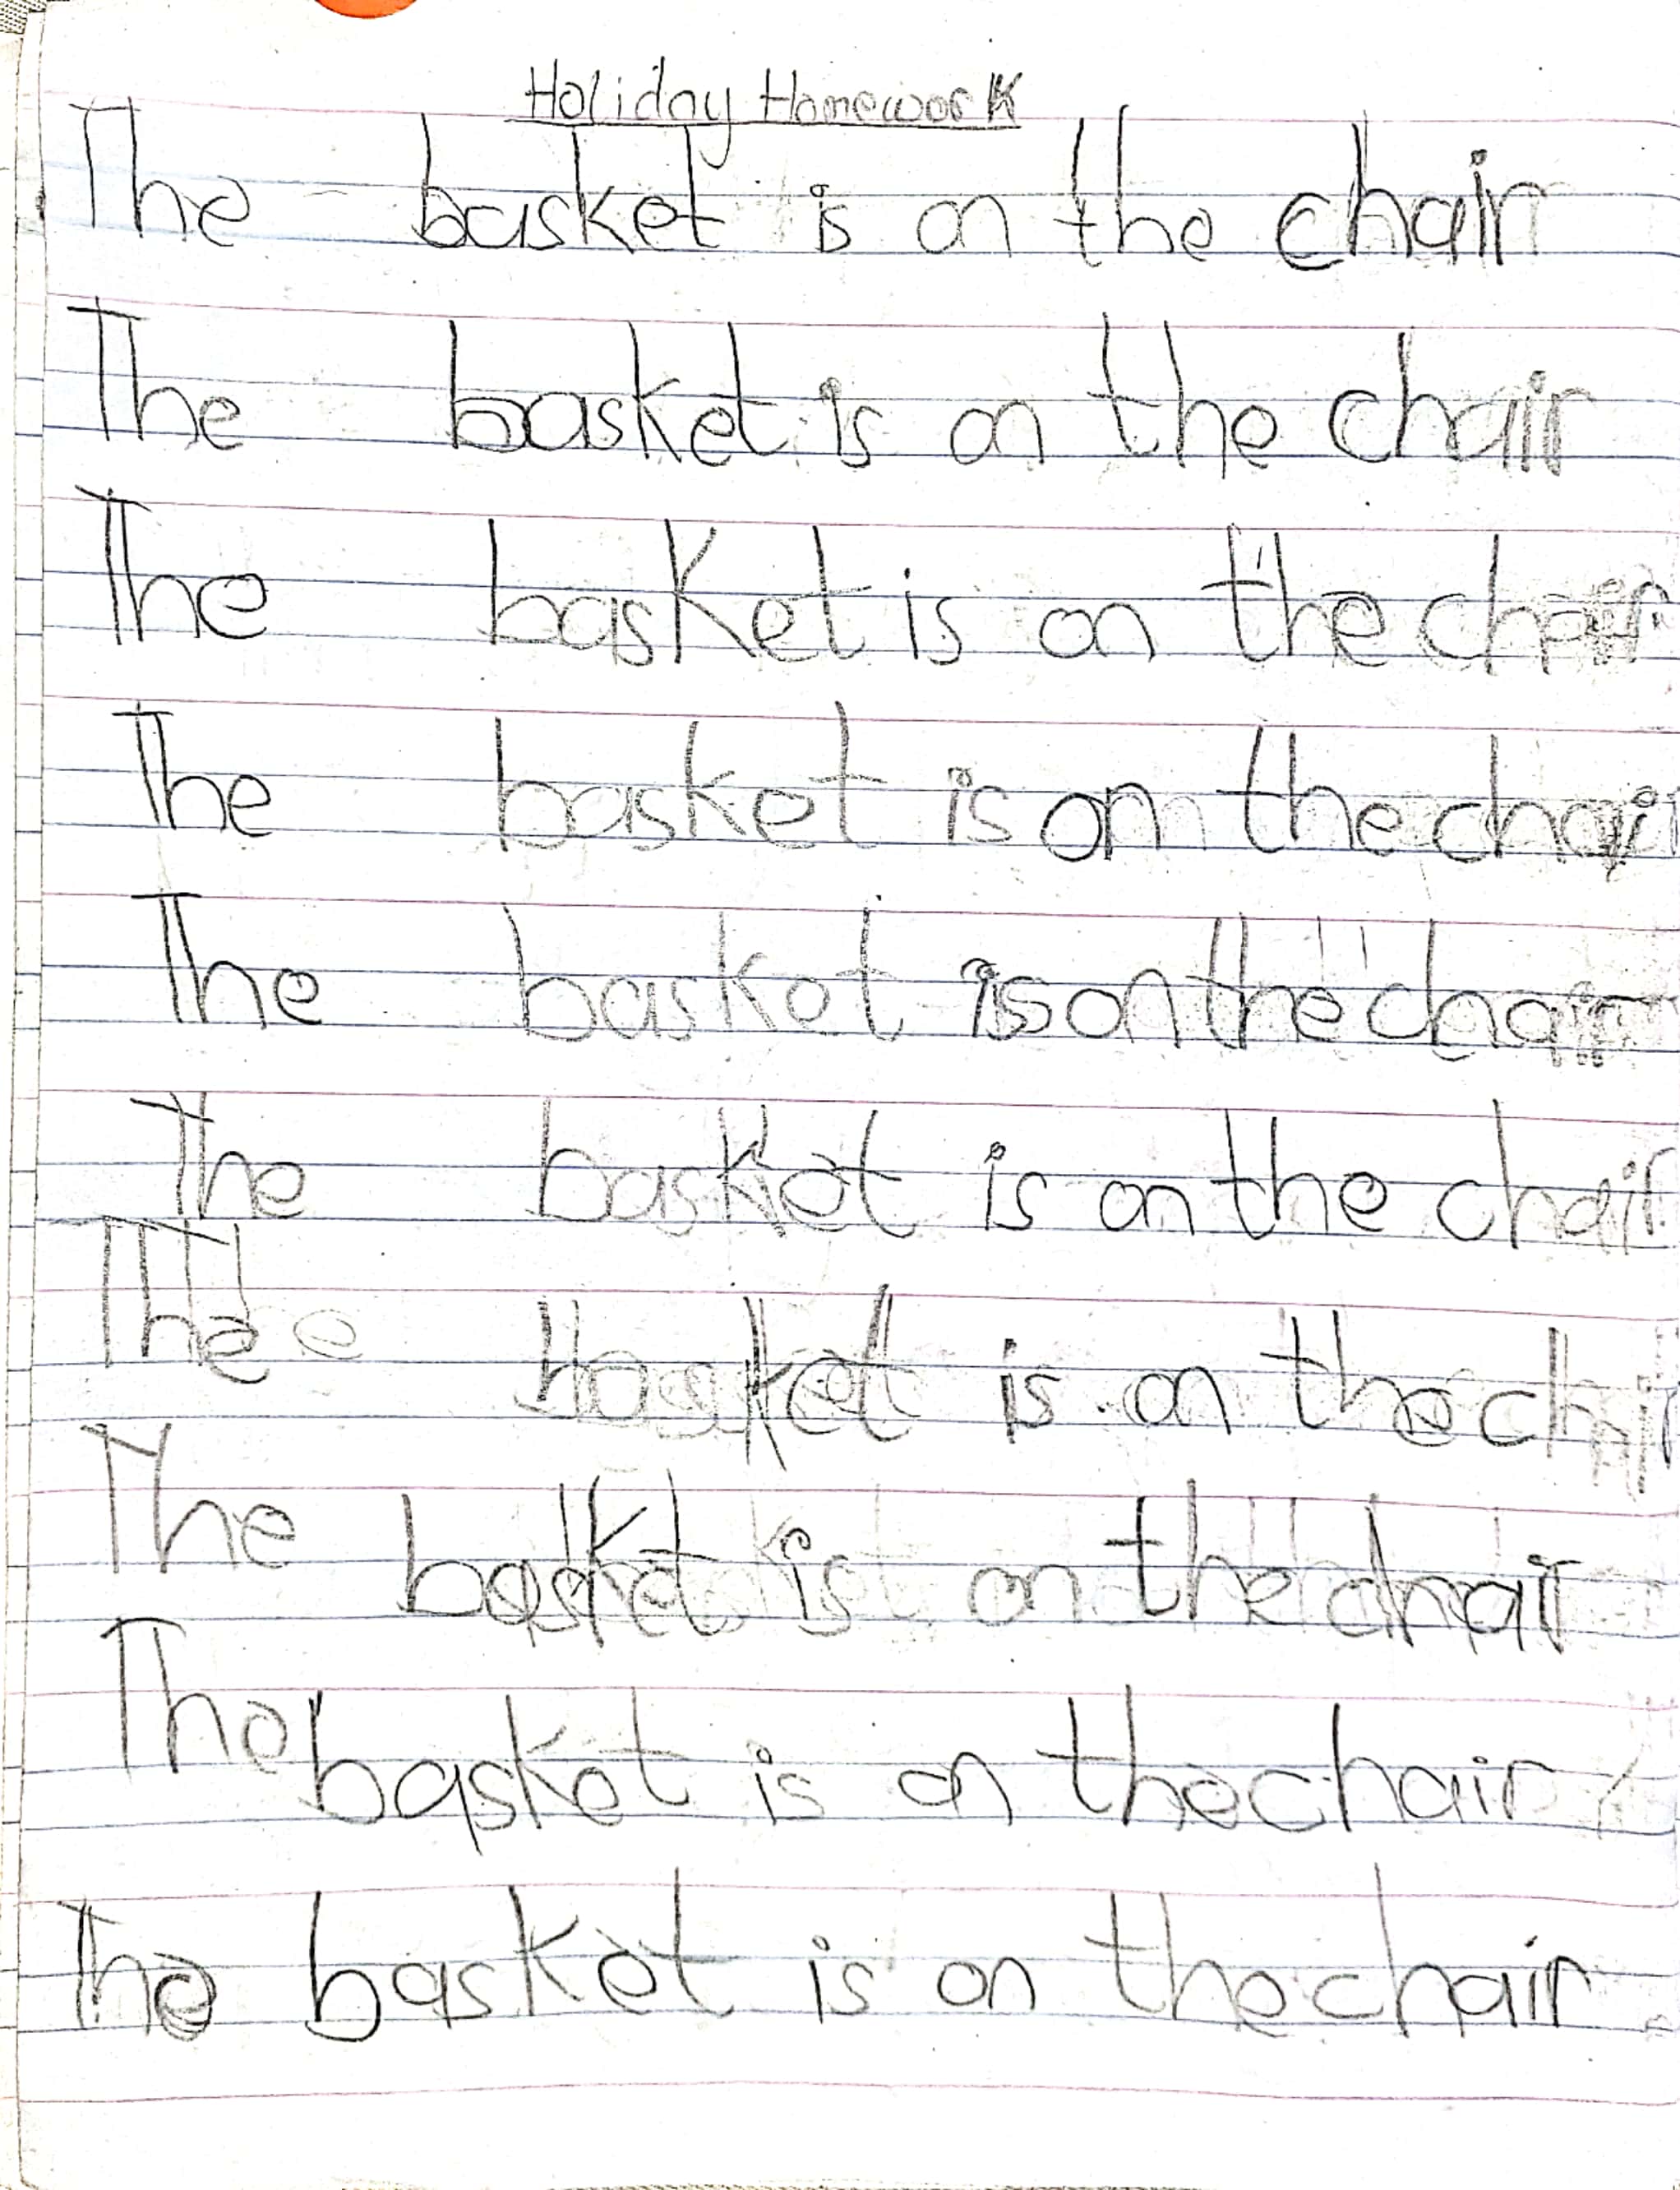 Holiday Homework
The basket is on the chair
The basket is on the chair
The basket is on the chair
The basket is on the chair
The basket is on the chair
The basket is on the chair
The basket is on the chair
The basket is on the chair
The basket is on the chair
The basket is on the chair.